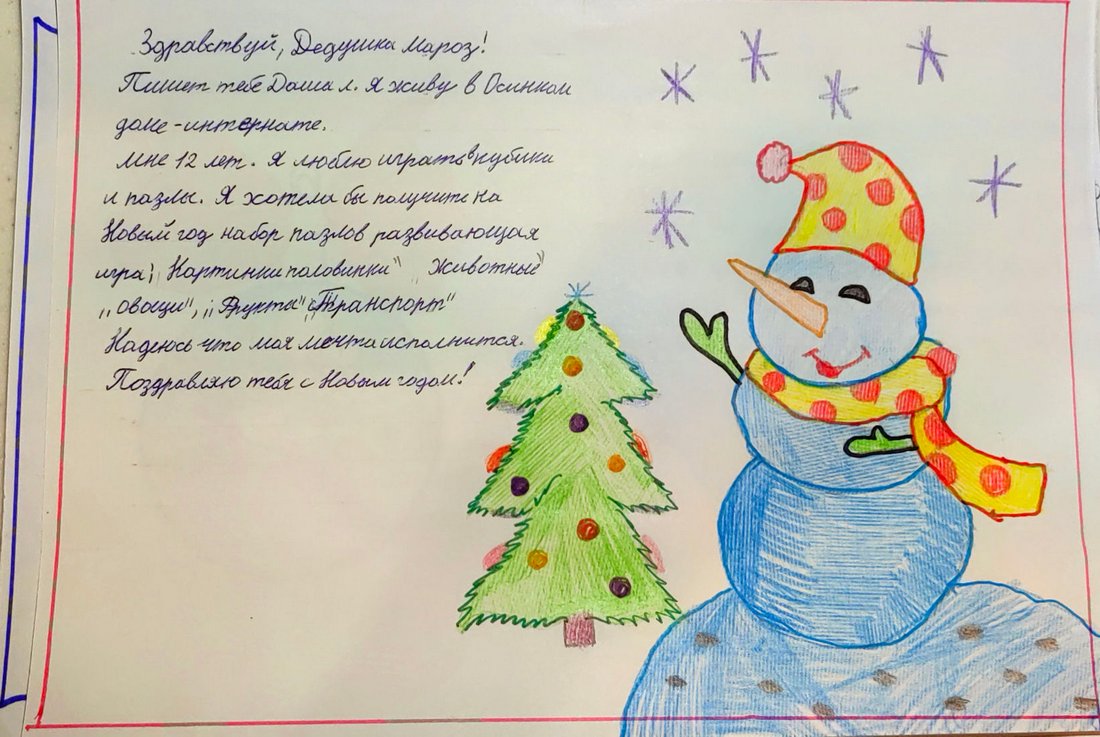 Здравствуй, Дедушка Мароз!
Пишет тебе Даша Л. Я живу в Осинком
доме-интернате.
Мне 12 лет. Я люблю играть в кубики
и пазлы. Я хотела бы получить на
Новый год набор пазлов развивающая
игра; Картинки половинки" Животные"
„овощи", „Фрукты" „Транспорт"
Надеюсь что моя мечта исполнится.
Поздравляю тебя с Новым годом!